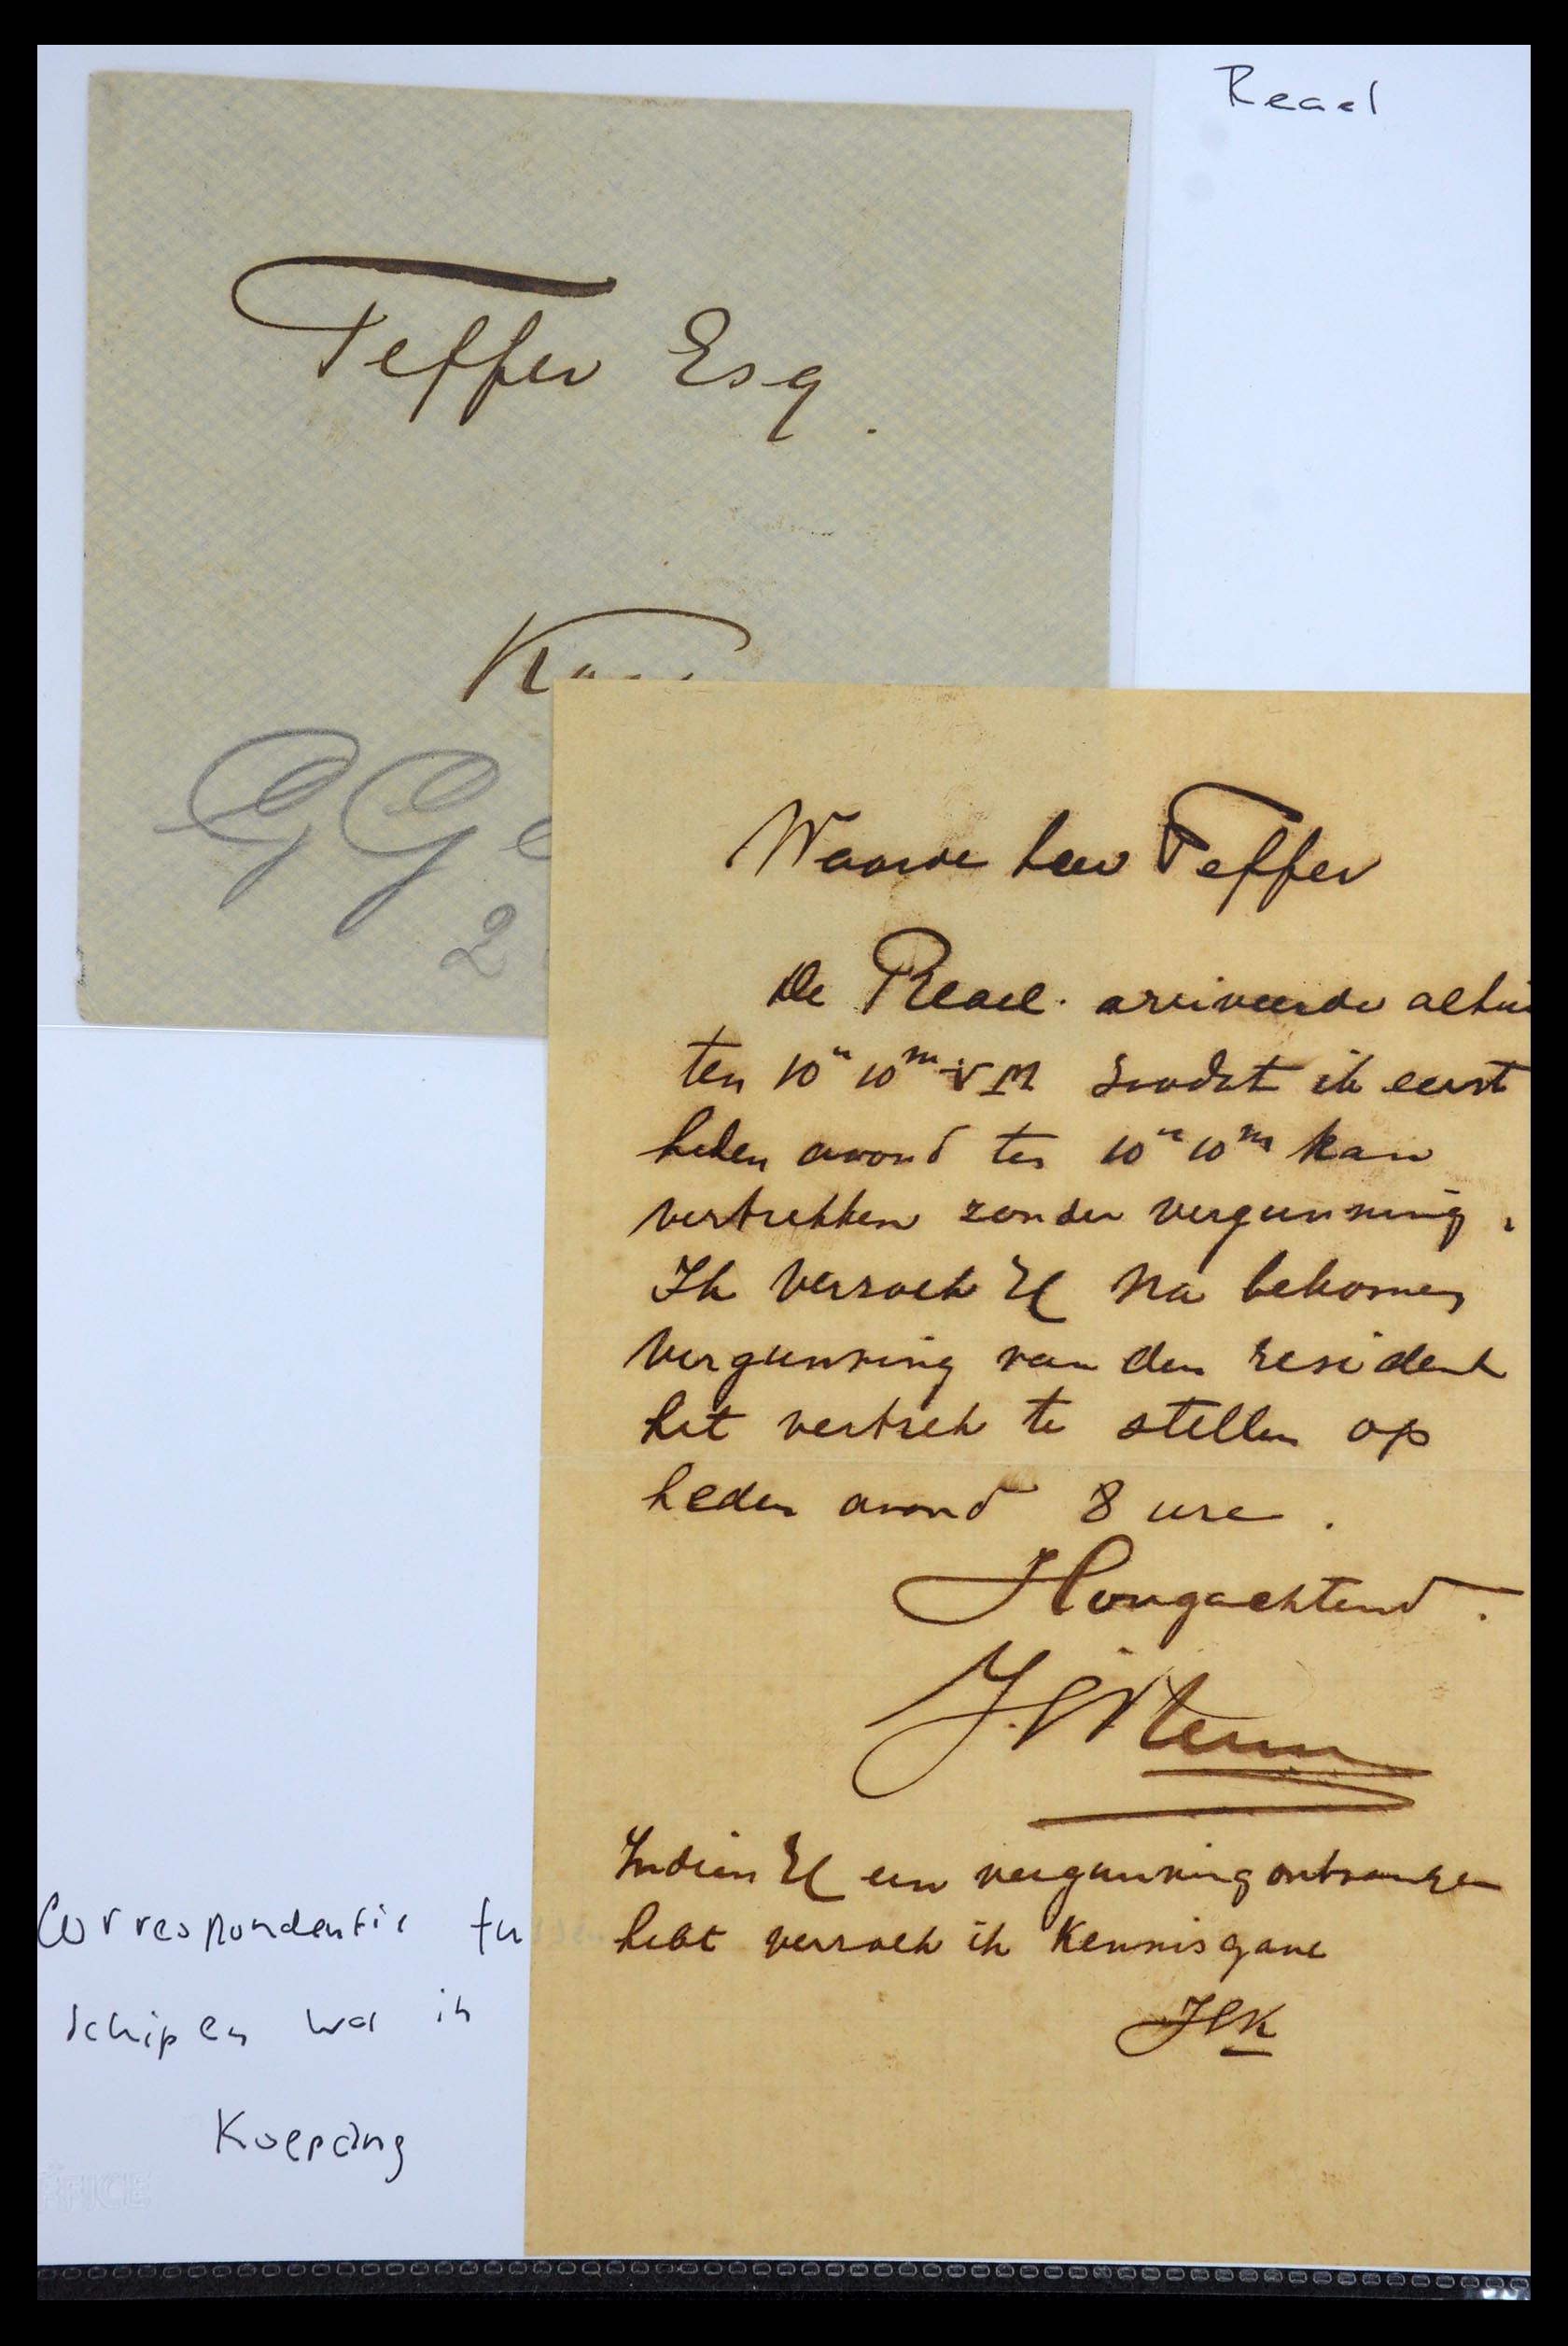 Reael
Teffer Esq.
GG
2
Waarde heer Teffer
De Reael. arriveerde alhier
ten 10u 10m VM zoodat ik eerst
heden avond ten 10u 10m kan
vertrekken zonder vergunning.
Ik verzoek U na bekomen
vergunning van den resident
het vertrek te stellen op
heden avond 8 ure.
Hoogachtend.
Indien U een vergunning ontvangen
hebt verzoek ik kennisgave
JHK
Correspondentie
schip en wal in
Koepang
OFFICE